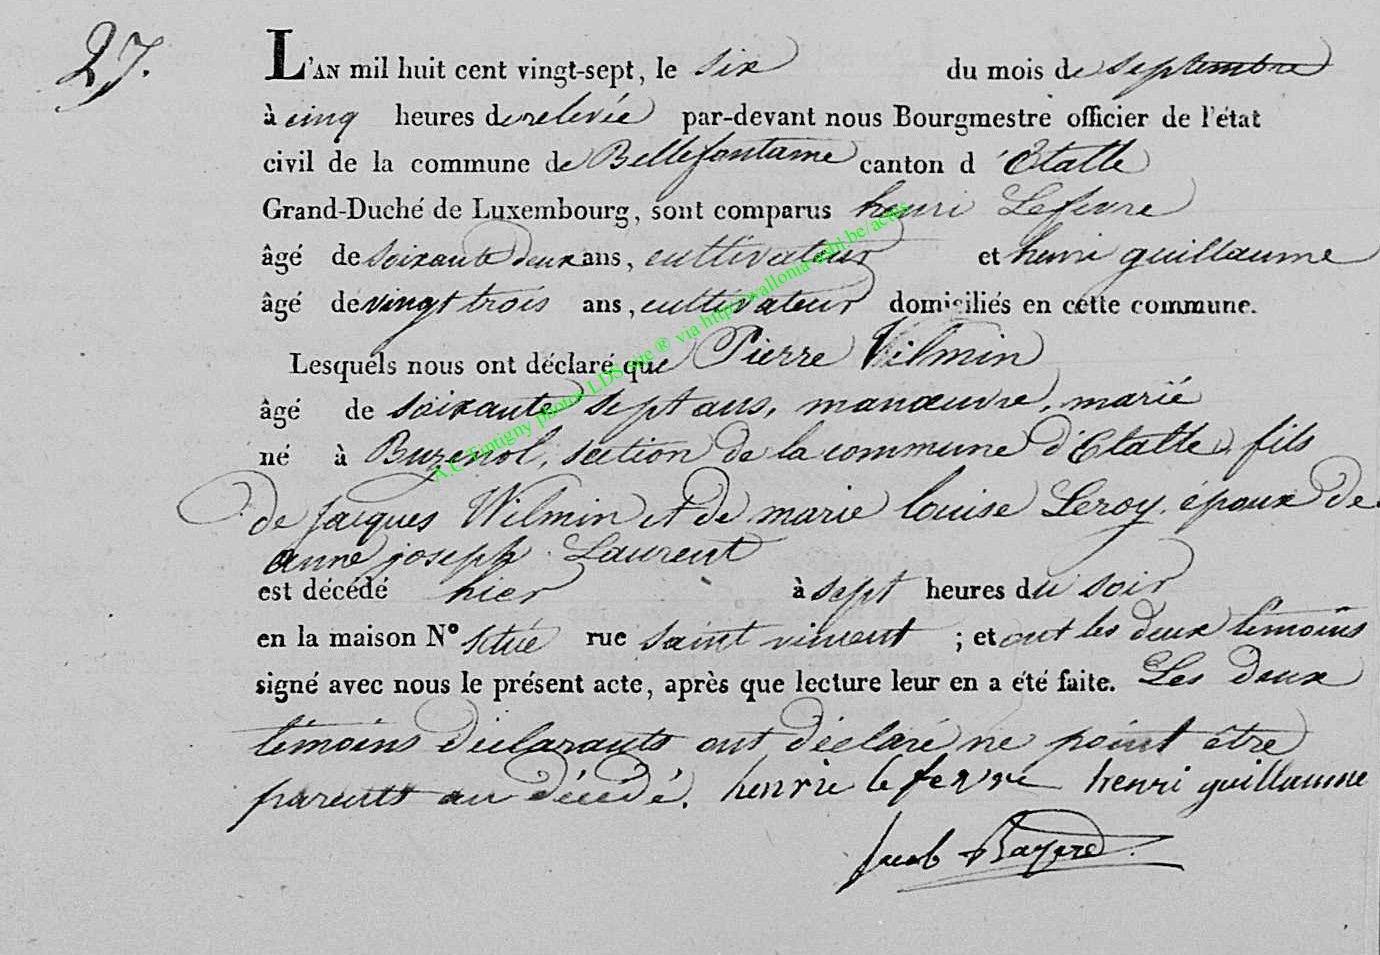 27.
L'AN mil huit cent vingt-sept, le six du mois de septembre
à cinq heures de relevée par-devant nous Bourgmestre officier de l'état
civil de la commune de Bellefontaine canton d'Etalle
Grand-Duché de Luxembourg, sont comparus henri Lefevre
âgé de soixante deux ans, cultivateur et henri guillaume
âgé de vingt trois ans, cultivateur domiciliés en cette commune.
Lesquels nous ont déclaré que Pierre Wilmin
âgé de soixante sept ans, manœuvre, marié
né à Buzenol, section de la commune d'Etalle, fils
de jacques Wilmin et de marie louise Leroy, époux de
anne joseph Laurent
est décédé hier à sept heures du soir
en la maison N° située rue saint vincent ; et ont les deux témoins
signé avec nous le présent acte, après que lecture leur en a été faite. Les deux
témoins déclarants ont déclaré ne point être
parents au décédé. henrie le fevre henri guillaume
Jacob
A.C. Tintigny photos LDS site ® via http://wallonia-asbl.be/actes